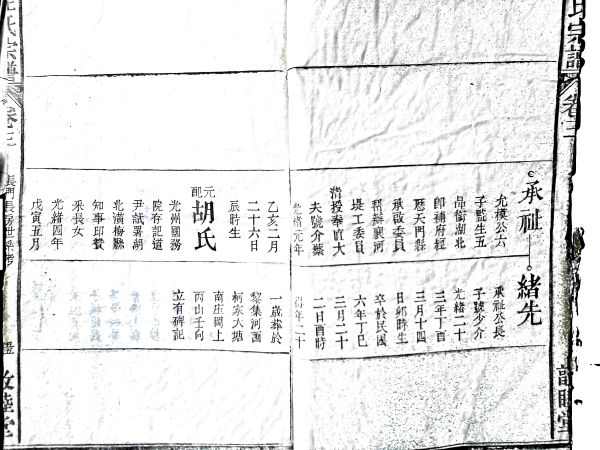 氏宗譜
卷三
承祉
尤模公六
子監生五
品銜湖北
即補府經
歷天門縣
承啟委員
幇辦襄河
堤工委員
清授奉直大
夫號介
光緒元年
乙亥二月
二十六日
辰時生
元配
胡氏
光州國務
院存記道
尹試署湖
北黃梅縣
知事印贊
采長女
光緒四年
戊寅五月
緒先
承祉公長
子號少介
光緒二十
三年丁酉
三月十四
日卯時生
卒於民國
六年丁巳
三月二十
二日酉時
得年二十
一歲葬於
黎集河西
柯家大塘
南庄岡上
丙山壬向
立有碑記
睦堂
氏宗譜
卷三
長門長房世系考
敦睦堂